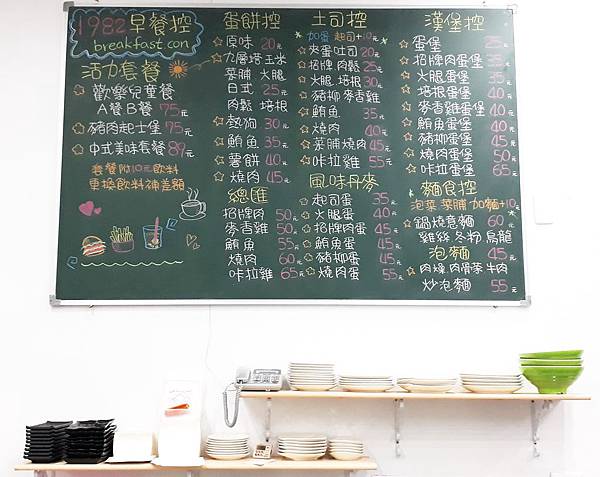 1982早餐控
breakfast.con
活力套餐
歡樂兒童餐
A餐B餐 75元
豬肉起士堡 75元
中式美味套餐 89元
套餐附10元飲料
更換飲料補差額
蛋餅控
原味 20元
九層塔 玉米
菜脯 火腿
日式 25元
肉鬆 培根
熱狗 30元
鮪魚 35元
薯餅 40元
燒肉 45元
總匯
招牌肉 50元
麥香雞 50元
鮪魚 55元
燒肉 60元
咔拉雞 65元
土司控
加蛋 起司+10元
夾蛋吐司 20元
招牌肉鬆 25元
火腿 培根 30元
豬柳 麥香雞
鮪魚 35元
燒肉 40元
菜脯燒肉 45元
咔拉雞 55元
風味丹麥
起司蛋 35元
火腿蛋 40元
招牌肉蛋 45元
鮪魚蛋 45元
豬柳蛋 45元
燒肉蛋 55元
漢堡控
蛋堡 25元
招牌肉蛋堡 35元
火腿蛋堡 35元
培根蛋堡 40元
麥香雞蛋堡 40元
鮪魚蛋堡 45元
豬柳蛋堡 45元
燒肉蛋堡 50元
咔拉蛋堡 65元
麵食控
泡菜 菜脯 加麵+10元
鍋燒意麵 60元
雞絲 冬粉 烏龍
泡麵 45元
肉燥 肉骨茶 牛肉
炒泡麵 55元